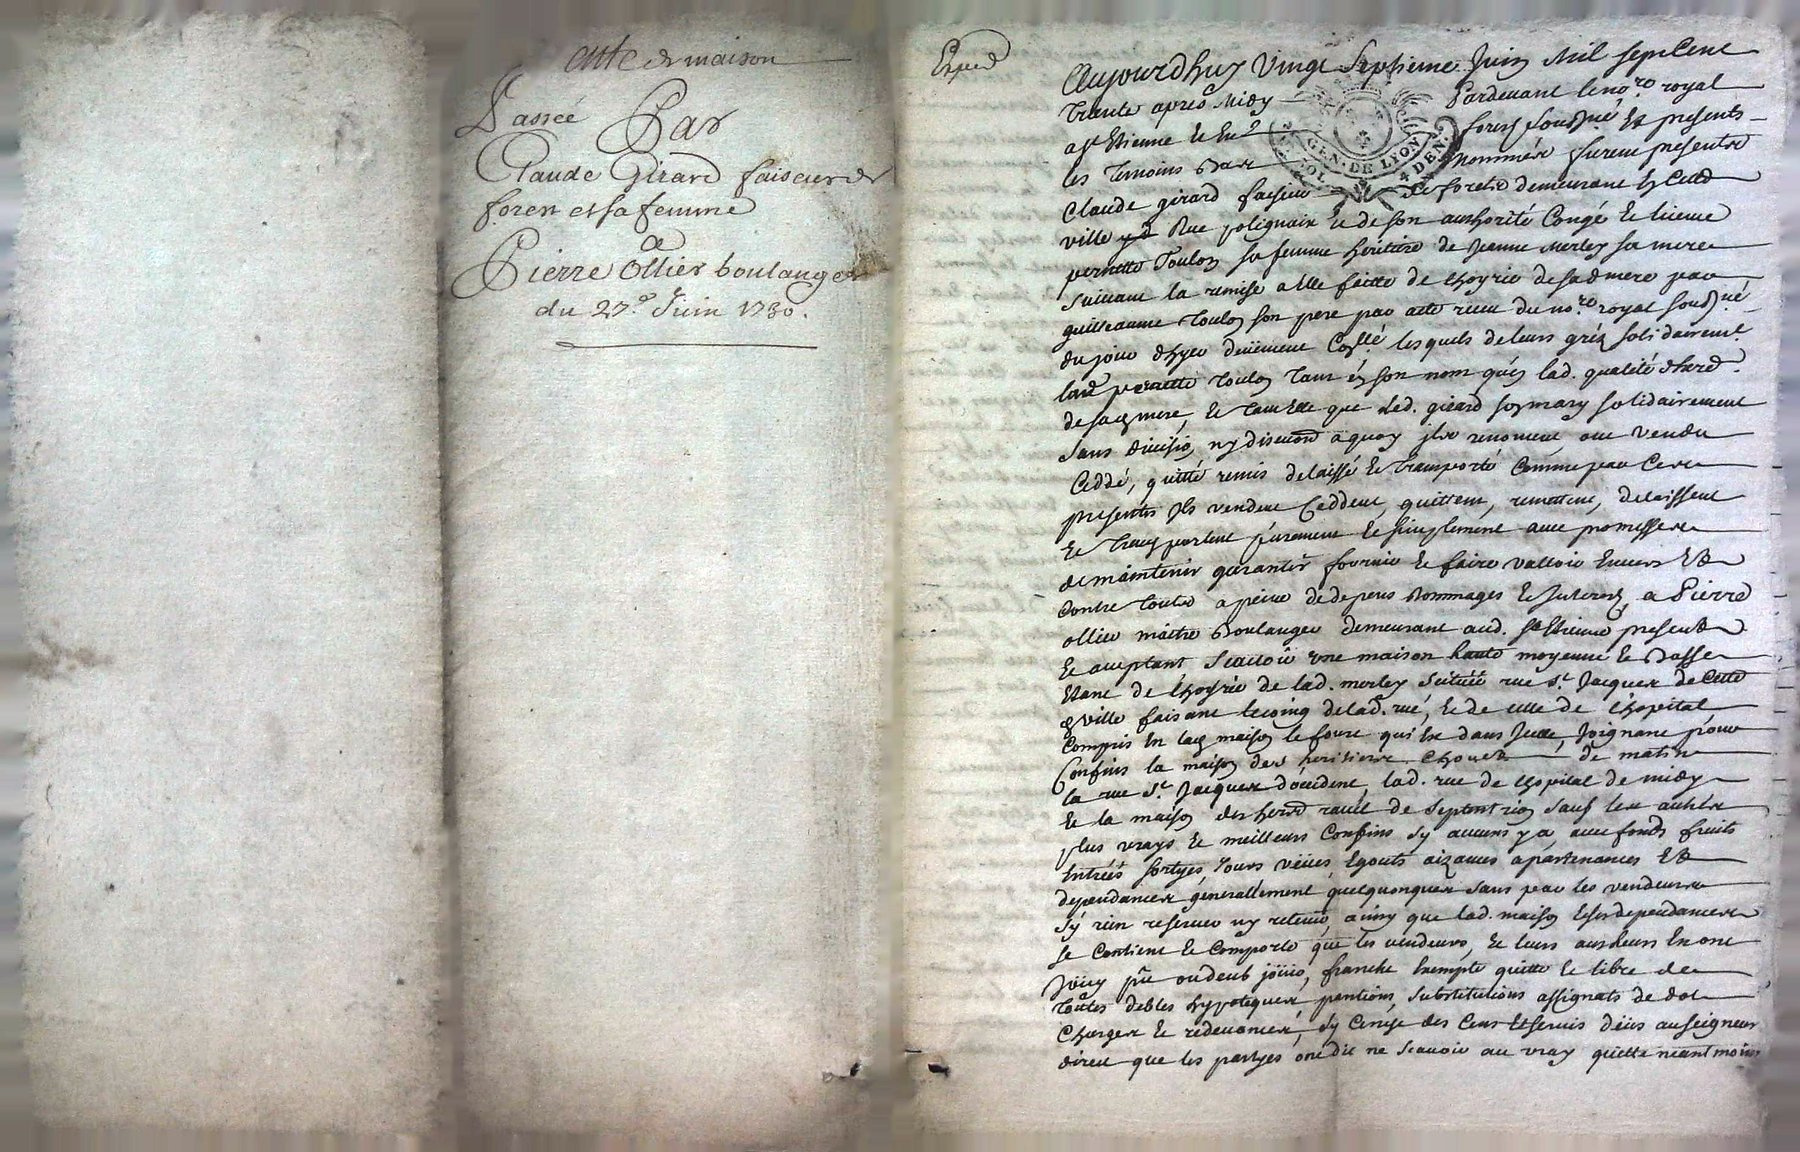 acte de maison
Passée Par
Claude Girard faiseur de
forest et sa femme
a
Pierre Ollier boulanger
du 27e. Juin 1730.
Exped
Aujourdhuy Vingt Septieme Juin Mil Sept Cent
trente apres Midy Pardevant le no.re royal
a St Etienne le forest sousné Et presents
les temoins Bas nommés furent presents
GEN. DE LYON
SOL 4 DEN.
Claude girard faiseur de forets demeurant En Cette
ville Rue polignais Et de son authorité Congé Et licence
pernette Toulon sa femme heritiere de Jeanne merley sa mere
suivant la remise a Elle faitte de Lhoyrie de sad mere par
guilleaume Toulon son pere par acte receu du no.re royal sousné
du jour dhyer deüement Collé lesquels de leurs grés solidairement
lad pernette Toulon tant En son nom qu'en lad. qualité d'hered.
de sad mere, Et tant Elle que led. girard son mary solidairement
sans division ny discution a quoy ils renoncent, ont vendu
Ceddé, quitté remis delaissé Et transporté Comme par Ces
presentes Ils vendent Ceddent, quittent, remettent, delaissent
Et transportent purement Et simplement avec promesses
de maintenir garantir fournir Et faire valloir Envers Et
Contre tous a peine de depens dommages Et Interests, a Pierre
ollier maitre Boulanger demeurant aud. St Etienne present
Et acceptant Scavoir Une maison haute moyenne Et Basse
Etant de Lhoyrie de lad. merley scituée rue St. Jacques de Cette
ville faisant le coing de lad. rue, Et de celle de L'hopital
Compris En lad maison le four qui Est dans Icelle, Joignant pour
Confins la maison des heritiers Chovet de matin
la rue St. Jacques d'occident, lad. rue de Lhopital de midy
Et la maison des hered ravel de Septentrion sauf les autres
plus vrays Et meilleurs Confins sy aucuns y a, avec fonds fruits
Entrées sortyes, Jours veües Egouts aizances apartenances Et
dependances generallement quelquonques sans par les vendeurs
s'y rien reserver ny retenir, ainsy que lad. maison Et ses dependances
se Contient Et Comporte que les vendeurs, Et leurs autheurs En ont
Jouy pû ou deub joüir, franche Exempte quitte Et libre de
Toutes debtes hypoteques pentions, substitutions assignats de dot
Charges Et redevances, sy Ce n'est des Cens Et servis düs au seigneur
direct que les partyes ont dit ne scavoir au vray quitte neantmoins